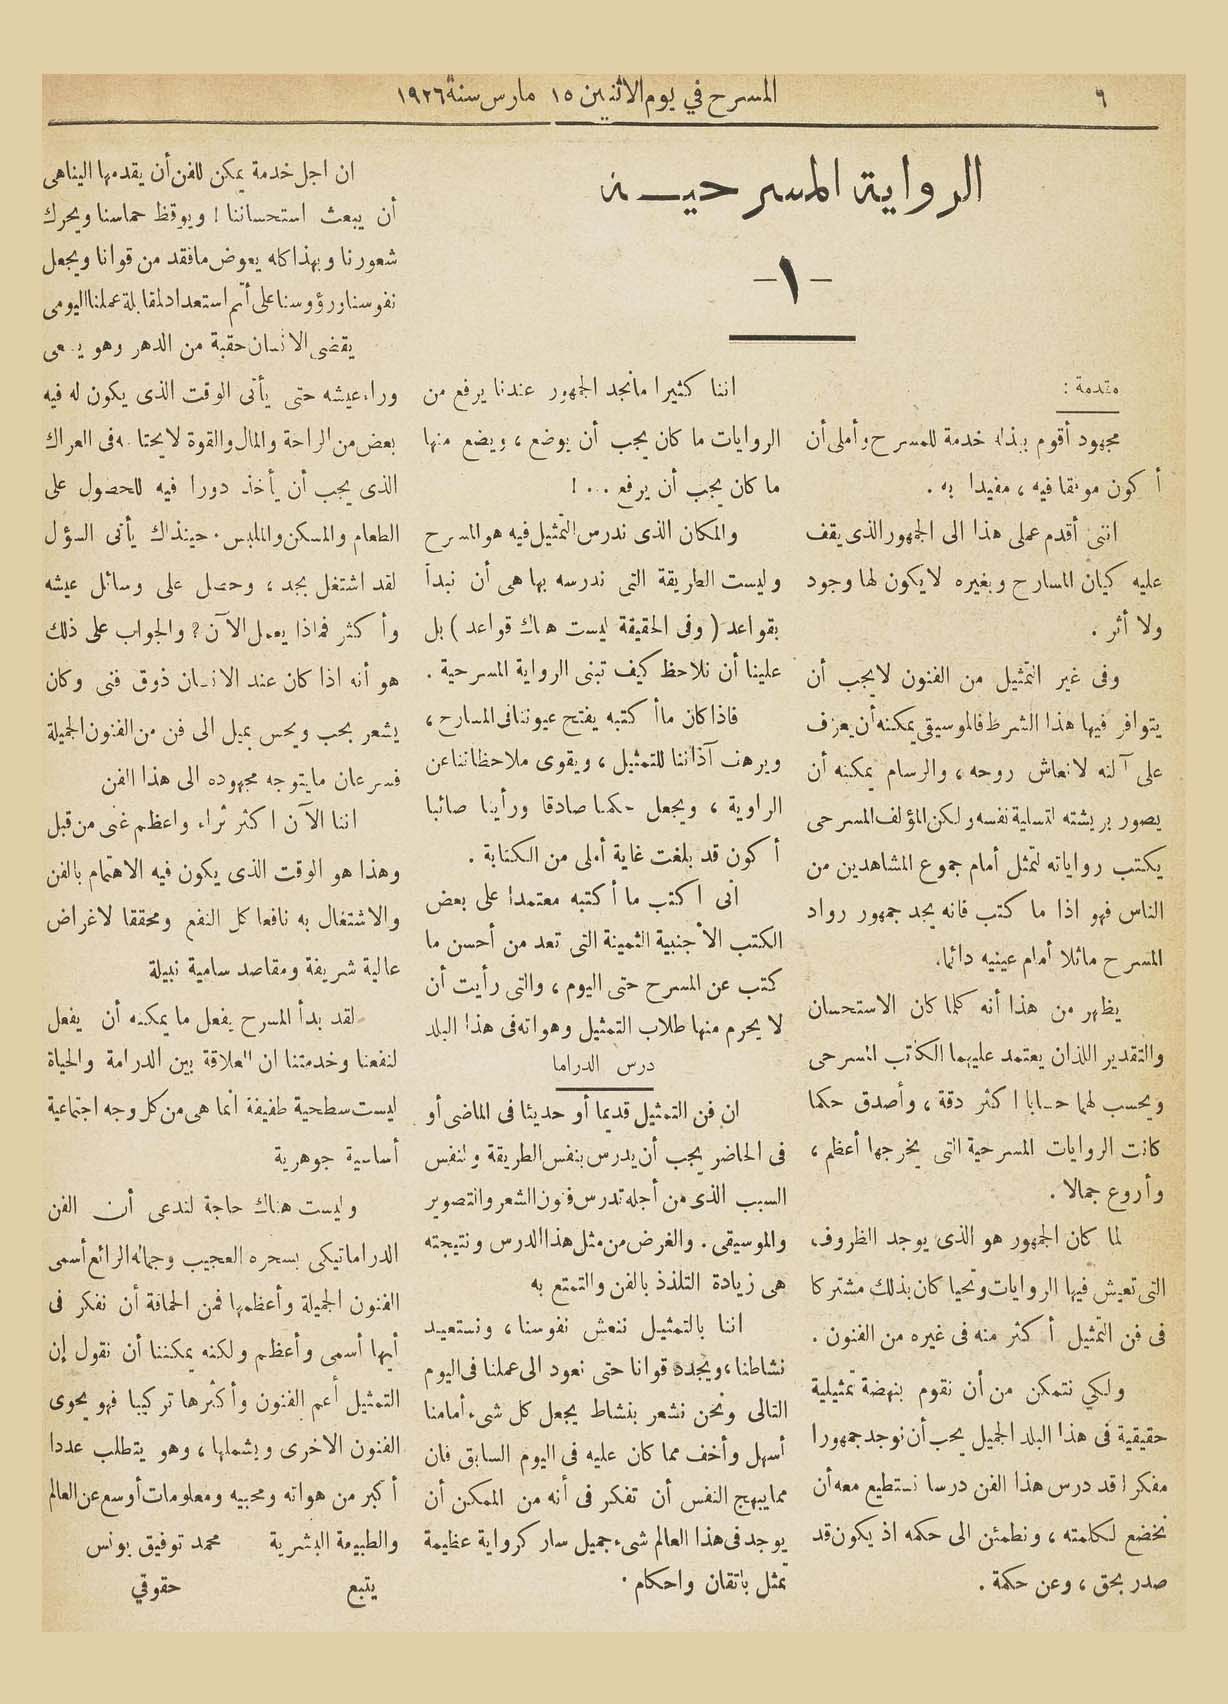 ٦
المسرح في يوم الاثنين ١٥ مارس سنة ١٩٢٦
الرواية المسرحية
-١-
مقدمة :
مجهود أقوم ببذله خدمة للمسرح وأملى أن
أكون موفقا فيه ، مفيدا به .
اننى أقدم عملى هذا الى الجمهور الذى يقف
عليه كيان المسارح وبغيره لا يكون لها وجود
ولا أثر .
وفى غير التمثيل من الفنون لا يجب أن
يتوافر فيها هذا الشرط فالموسيقى يمكنه أن يعزف
على آلته لانعاش روحه ، والرسام يمكنه أن
يصور بريشته لتسلية نفسه ولكن المؤلف المسرحى
يكتب رواياته لتمثل أمام جموع المشاهدين من
الناس فهو اذا ما كتب فانه يجد جمهور رواد
المسرح ماثلا أمام عينيه دائما.
يظهر من هذا أنه كلما كان الاستحسان
والتقدير اللذان يعتمد عليهما الكاتب المسرحى
ويحسب لهما حسابا اكثر دقة ، وأصدق حكما
كانت الروايات المسرحية التى يخرجها أعظم ،
وأروع جمالا .
لما كان الجمهور هو الذى يوجد الظروف،
التى تعيش فيها الروايات وتحيا كان بذلك مشتركا
فى فن التمثيل أكثر منه فى غيره من الفنون .
ولكي نتمكن من أن نقوم بنهضة تمثيلية
حقيقية فى هذا البلد الجميل يجب أن نوجد جمهورا
مفكرا قد درس هذا الفن درسا نستطيع معه أن
نخضع لكلمته ، ونطمئن الى حكمه اذ يكون قد
صدر بحق ، وعن حكمة .
اننا كثيرا مانجد الجمهور عندنا يرفع من
الروايات ما كان يجب أن يوضع ، ويضع منها
ما كان يجب أن يرفع . . . !
والمكان الذى ندرس التمثيل فيه هو المسرح
وليست الطريقة التى ندرسه بها هى أن نبدأ
بقواعد ( وفى الحقيقة ليست هناك قواعد ) بل
علينا أن نلاحظ كيف تبنى الرواية المسرحية .
فاذا كان ما أكتبه يفتح عيوننا فى المسارح ،
ويرهف آذاننا للتمثيل ، ويقوى ملاحظاتنا عن
الراوية ، ويجعل حكمنا صادقا ورأينا صائبا
أكون قد بلغت غاية أملى من الكتابة .
انى اكتب ما أكتبه معتمدا على بعض
الكتب الأجنبية الثمينة التى تعد من أحسن ما
كتب عن المسرح حتى اليوم ، والتى رأيت أن
لا يحرم منها طلاب التمثيل وهواته فى هذا البلد
درس الدراما
ان فن التمثيل قديما أو حديثا فى الماضى أو
فى الحاضر يجب أن يدرس بنفس الطريقة ولنفس
السبب الذى من أجله تدرس فنون الشعر والتصوير
والموسيقى . والغرض من مثل هذا الدرس ونتيجته
هى زيادة التلذذ بالفن والتمتع به
اننا بالتمثيل ننعش نفوسنا ، ونستعيد
نشاطنا ، ويجدد قوانا حتى نعود الى عملنا فى اليوم
التالى ونحن نشعر بنشاط يجعل كل شىء أمامنا
أسهل وأخف مما كان عليه فى اليوم السابق فان
مما يبهج النفس أن تفكر فى أنه من الممكن أن
يوجد فى هذا العالم شىء جميل سار كرواية عظيمة
تمثل باتقان واحكام .
ان اجل خدمة يمكن للفن أن يقدمها الينا هى
أن يبعث استحساننا ! ويوقظ حماسنا ويحرك
شعورنا وبهذا كله يعوض مافقد من قوانا ويجعل
نفوسنا ورؤوسنا على أتم استعداد لمقابلة عملنا اليومى
يقضى الانسان حقبة من الدهر وهو يسعى
وراء عيشه حتى يأتى الوقت الذى يكون له فيه
بعض من الراحة والمال والقوة لا يحتاجه فى العراك
الذى يجب أن يأخذ دورا فيه للحصول على
الطعام والمسكن والملبس . حينذاك يأتى السؤال
لقد اشتغل بجد ، وحصل على وسائل عيشه
وأكثر فماذا يعمل الآن ؟ والجواب على ذلك
هو أنه اذا كان عند الانسان ذوق فنى وكان
يشعر بحب ويحس بميل الى فن من الفنون الجميلة
فسرعان مايتوجه مجهوده الى هذا الفن
اننا الآن اكثر ثراء واعظم غنى من قبل
وهذا هو الوقت الذى يكون فيه الاهتمام بالفن
والاشتغال به نافعا كل النفع ومحققا لاغراض
عالية شريفة ومقاصد سامية نبيلة
لقد بدأ المسرح يفعل ما يمكنه أن يفعل
لنفعنا وخدمتنا ان العلاقة بين الدرامة والحياة
ليست سطحية طفيفة انما هى من كل وجه اجتماعية
أساسية جوهرية
وليست هناك حاجة لندعى أن الفن
الدراماتيكى بسحره العجيب وجماله الرائع أسمى
الفنون الجميلة وأعظمها فمن الحماقة أن نفكر فى
أيها أسمى وأعظم ولكنه يمكننا أن نقول إن
التمثيل أعم الفنون وأكثرها تركيبا فهو يحوى
الفنون الاخرى ويشملها ، وهو يتطلب عددا
أكبر من هواته ومحبيه ومعلومات أوسع عن العالم
والطبيعة البشرية محمد توفيق يونس
يتبع حقوقي